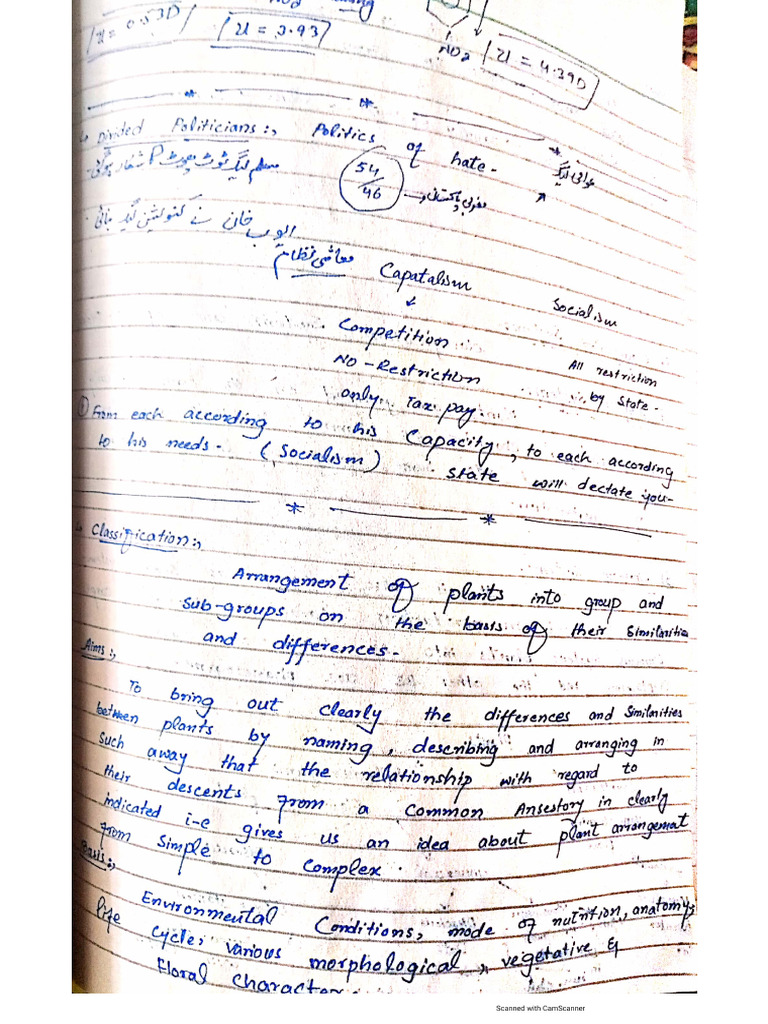 NO2
μ = 0.53D
μ = 3.93
NO2
μ = 4.39D
↳ Divided Politicians:, Politics of hate-
مسلم لیگ ٹوٹ پھوٹ کا شکار ہوگئی-
54/46
عوامی لیگ
ایوب خان نے کنونشن لیگ بنائی-
معاشی نظام
Capatalism Socialism
↓
Competition
NO-Restriction All restriction
only Tax pay. by State-
① From each according to his Capacity, to each according
to his needs- (Socialism) state will dectate you-
↳ Classification:,
Arrangement of plants into group and
sub-groups on the basis of their Similarities
and differences-
Aims:,
To bring out clearly the differences and Similarities
between plants by naming, describing and arranging in
Such away that the relationship with regard to
their descents from a common Ansestory in clearly
indicated i-e gives us an idea about plant arrangemat
from simple to complex.
Basis:,
Environmental Conditions, mode of nutrition, anatomy,
life cycle, various morphological, vegetative &
Floral character
Scanned with CamScanner